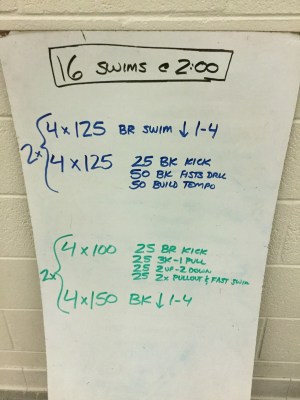 16 SWIMS @ 2:00
4x125 BR SWIM ↓ 1-4
2x
4x125 25 BK KICK
50 BK FISTS DRILL
50 BUILD TEMPO
4x100 25 BR KICK
25 3K-1 PULL
25 2 UP-2 DOWN
25 2x PULLOUT & FAST SWIM
2x
4x150 BK ↓ 1-4